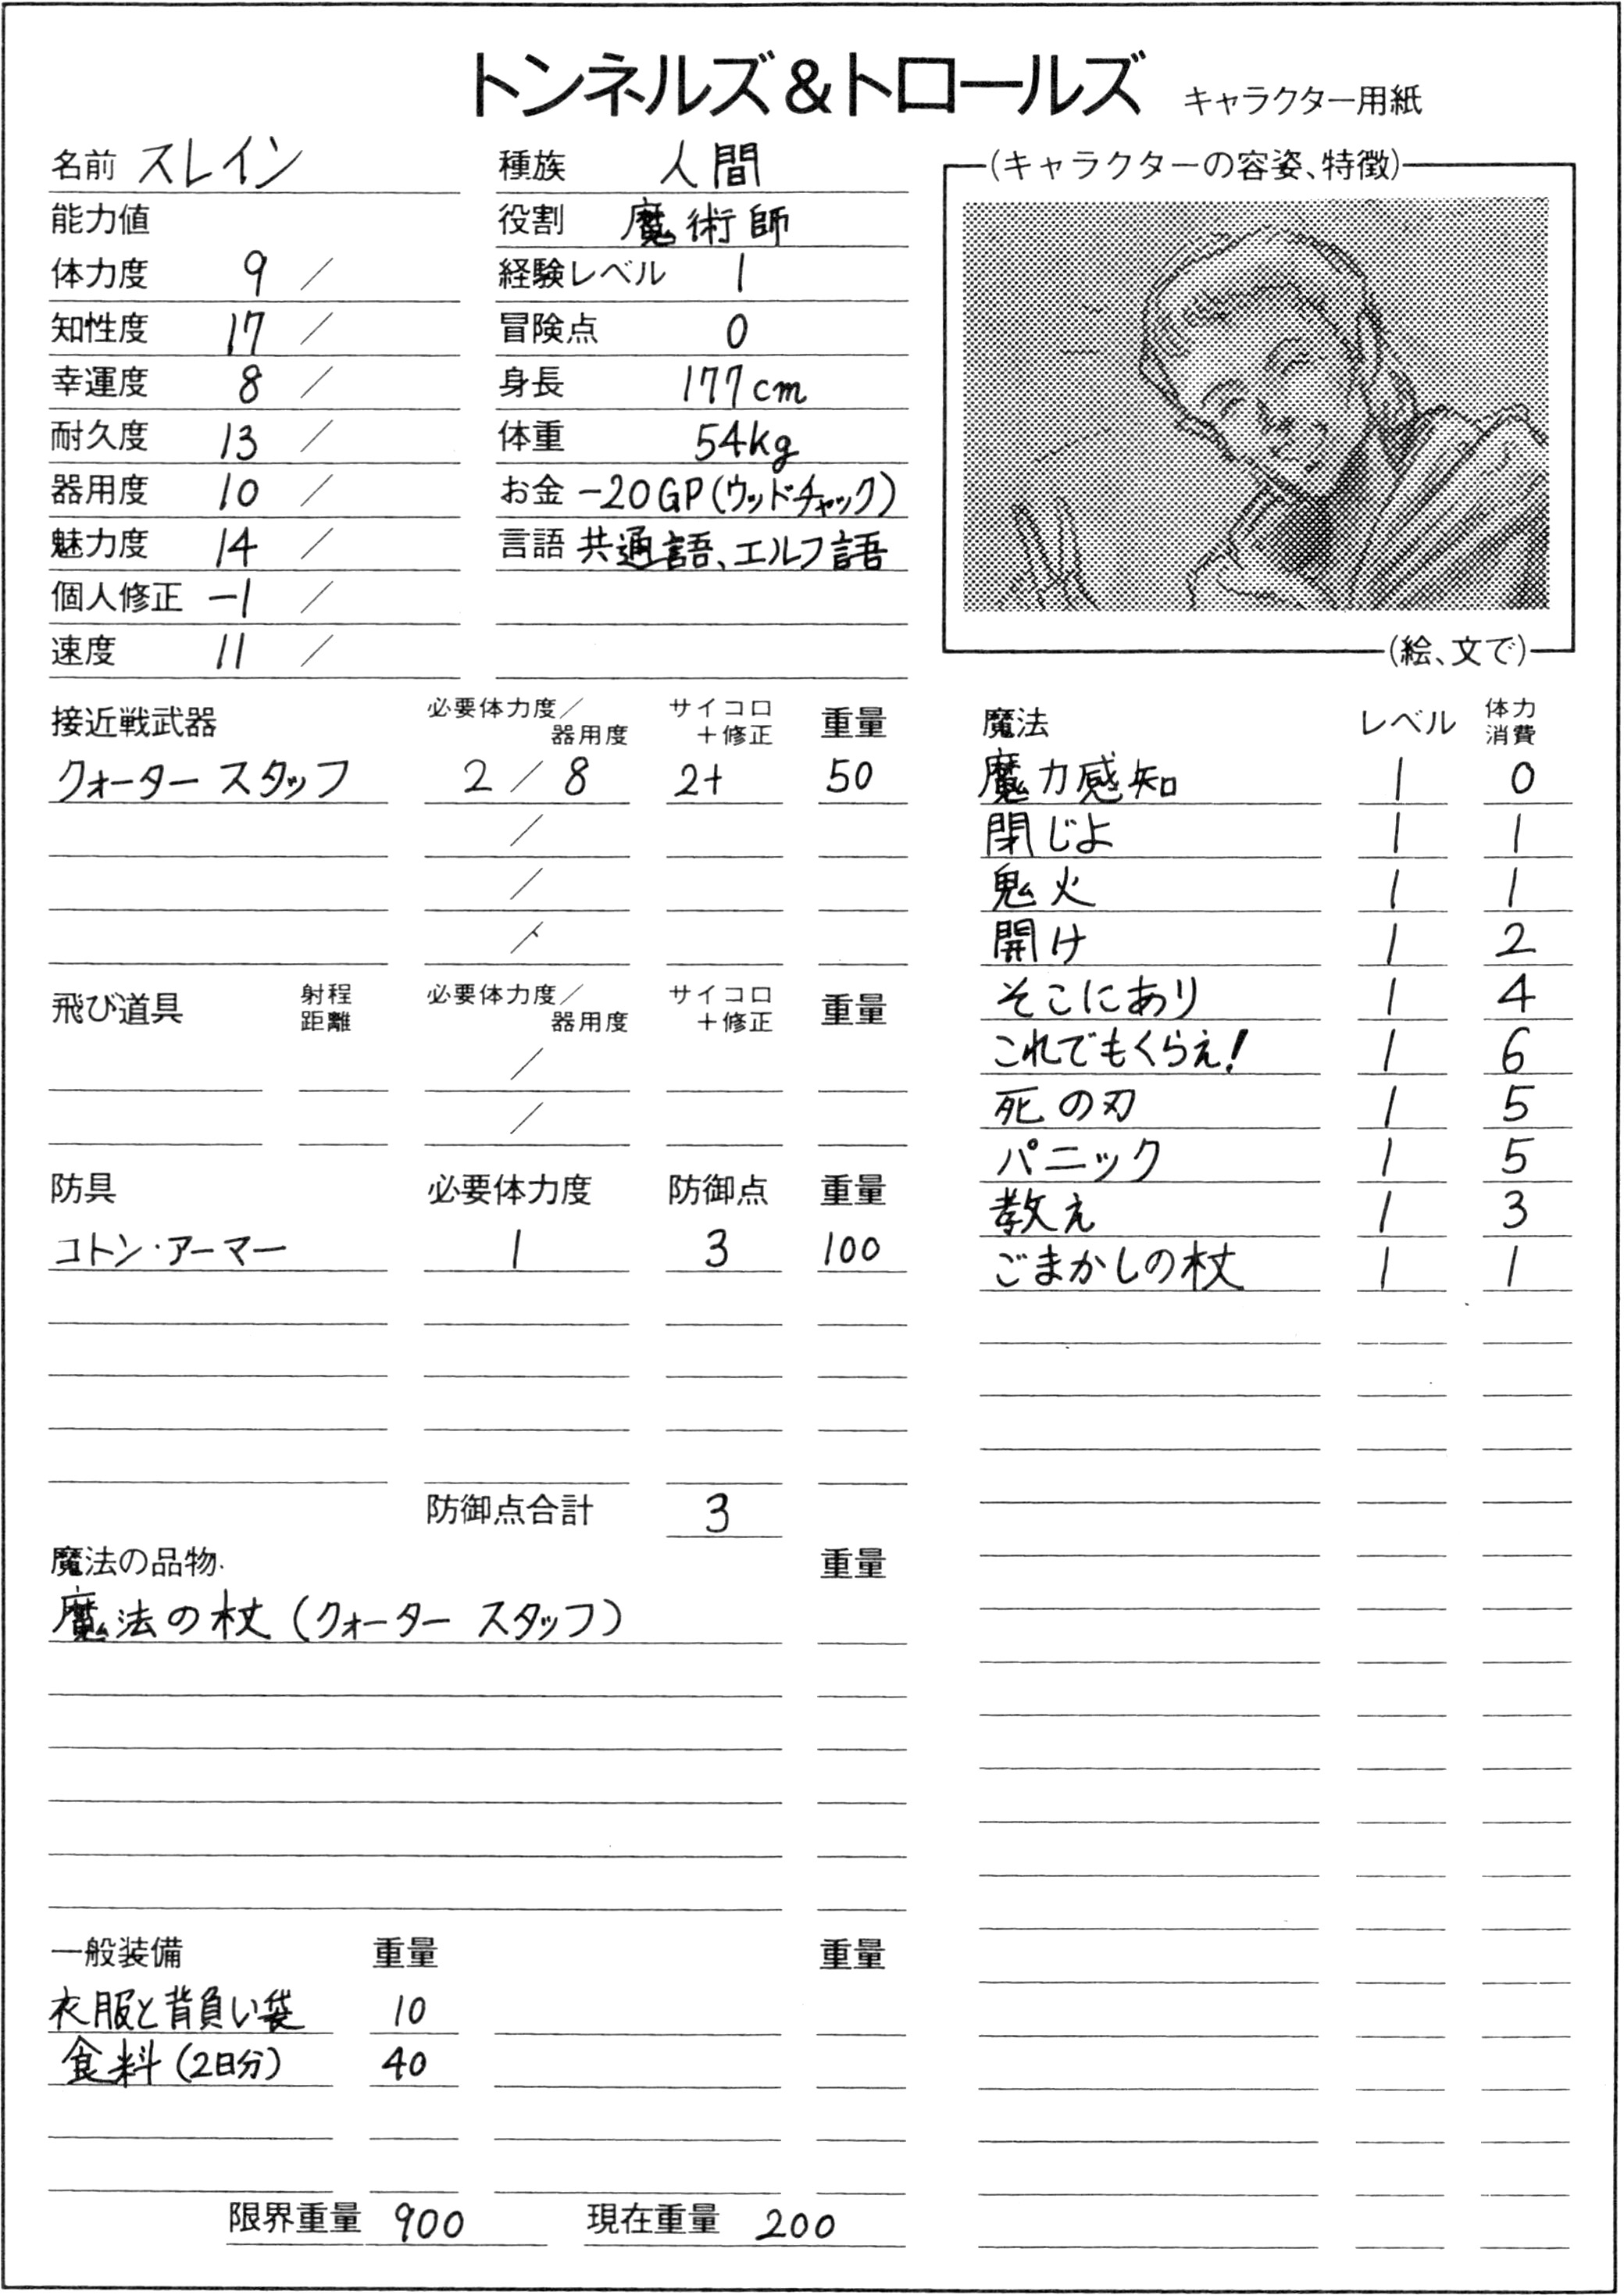 トンネルズ&トロールズ キャラクター用紙
名前 スレイン
能力値
体力度 9 /
知性度 17 /
幸運度 8 /
耐久度 13 /
器用度 10 /
魅力度 14 /
個人修正 -1 /
速度 11 /
種族 人間
役割 魔術師
経験レベル 1
冒険点 0
身長 177cm
体重 54kg
お金 -20GP(ウッドチャック)
言語 共通語、エルフ語
(キャラクターの容姿、特徴)
(絵、文で)
接近戦武器 必要体力度/器用度 サイコロ+修正 重量
クォータースタッフ 2/8 2+ 50
/
/
/
飛び道具 射程距離 必要体力度/器用度 サイコロ+修正 重量
/
/
防具 必要体力度 防御点 重量
コトン・アーマー 1 3 100
防御点合計 3
魔法の品物 重量
魔法の杖(クォータースタッフ)
一般装備 重量 重量
衣服と背負い袋 10
食料(2日分) 40
限界重量 900 現在重量 200
魔法 レベル 体力消費
魔力感知 1 0
閉じよ 1 1
鬼火 1 1
開け 1 2
そこにあり 1 4
これでもくらえ! 1 6
死の刃 1 5
パニック 1 5
教え 1 3
ごまかしの杖 1 1